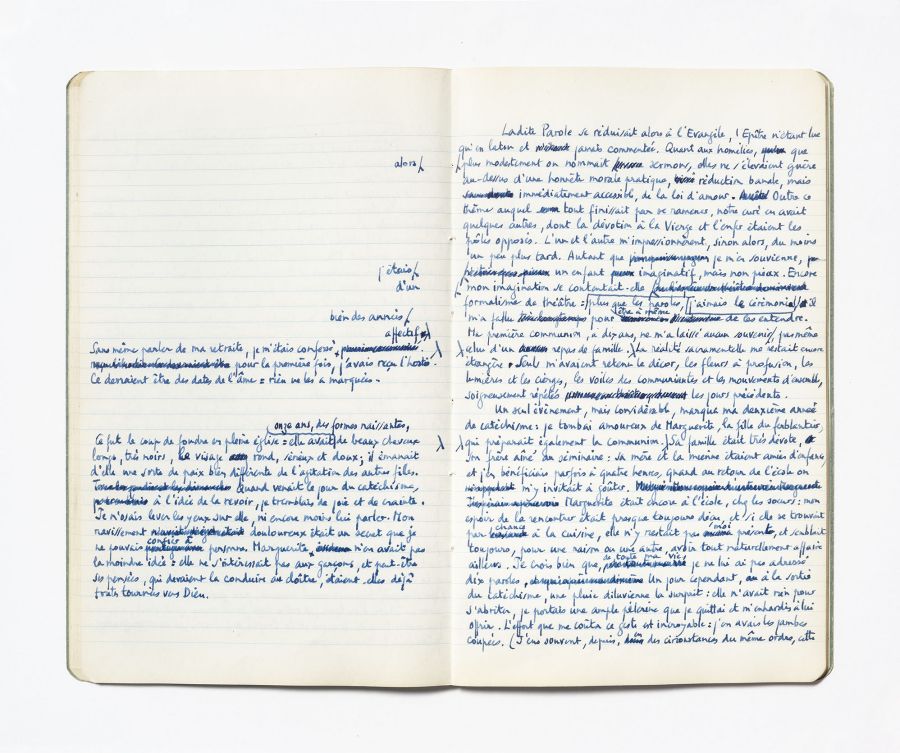 alors/
j'étais/
d'un
bien des années/
affectif
Sans même parler de ma retraite, je m'étais confessé,
pour la première fois, j'avais reçu l'hostie.
Ce devraient être des dates de l'âme : rien ne les a marquées.
onze ans, des formes naissantes,
Ce fut le coup de foudre en pleine église : elle avait de beaux cheveux
longs, très noirs, le visage rond, sérieux et doux ; il émanait
d'elle une sorte de paix bien différente de l'agitation des autres filles.
Quand venait le jour du catéchisme,
à l'idée de la revoir, je tremblais de joie et de crainte.
Je n'osais lever les yeux sur elle, ni encore moins lui parler. Mon
ravissement douloureux était un secret que je
confié à
ne pouvais personne. Marguerite n'en avait pas
la moindre idée : elle ne s'intéressait pas aux garçons, et peut-être
ses pensées, qui devaient la conduire au cloître, étaient-elles déjà
toutes tournées vers Dieu.
Ladite Parole se réduisait alors à l'Evangile, l'Epître n'étant lue
qu'en latin et jamais commentée. Quant aux homélies, que
plus modestement on nommait sermons, elles ne s'élevaient guère
au-dessus d'une honnête morale pratique, réduction banale, mais
immédiatement accessible, de la loi d'amour. Outre ce
thème auquel tout finissait par se ramener, notre curé en avait
quelques autres, dont la dévotion à la Vierge et l'enfer étaient les
pôles opposés. L'un et l'autre m'impressionnèrent, sinon alors, du moins
un peu plus tard. Autant que je m'en souvienne,
un enfant imaginatif, mais non pieux. Encore
mon imagination se contentait-elle
formalisme de théâtre : plus que les paroles, j'aimais le cérémonial. Il
être à même
m'a fallu pour de les entendre.
Ma première communion, à dix ans, ne m'a laissé aucun souvenir, pas même
celui d'un repas de famille. La réalité sacramentelle me restait encore
étrangère. Seuls m'avaient retenu le décor, les fleurs à profusion, les
lumières et les cierges, les voiles des communiantes et les mouvements d'ensemble,
soigneusement répétés les jours précédents.
Un seul événement, mais considérable, marqua ma deuxième année
de catéchisme : je tombai amoureux de Marguerite, la fille du ferblantier,
qui préparait également la communion. Sa famille était très dévote,
son frère aîné au séminaire : sa mère et la mienne étaient amies d'enfance,
et j'en bénéficiais parfois à quatre heures, quand au retour de l'école on
m'y invitait à goûter.
Marguerite était encore à l'école, chez les sœurs : mon
espoir de la rencontrer était presque toujours déçu, et si elle se trouvait
chance moi
par à la cuisine, elle n'y restait pas présente, et semblait
toujours, pour une raison ou une autre, avoir tout naturellement affaire
de toute ma vie,
ailleurs. Je crois bien que, je ne lui ai pas adressé
dix paroles, Un jour cependant, à la sortie
du catéchisme, une pluie diluvienne la surprit : elle n'avait rien pour
s'abriter, je portais une ample pèlerine que je quittai et m'enhardis à lui
offrir. L'effort que me coûta ce geste est incroyable : j'en avais les jambes
coupées. (J'eus souvent, depuis, des circonstances du même ordre, cette